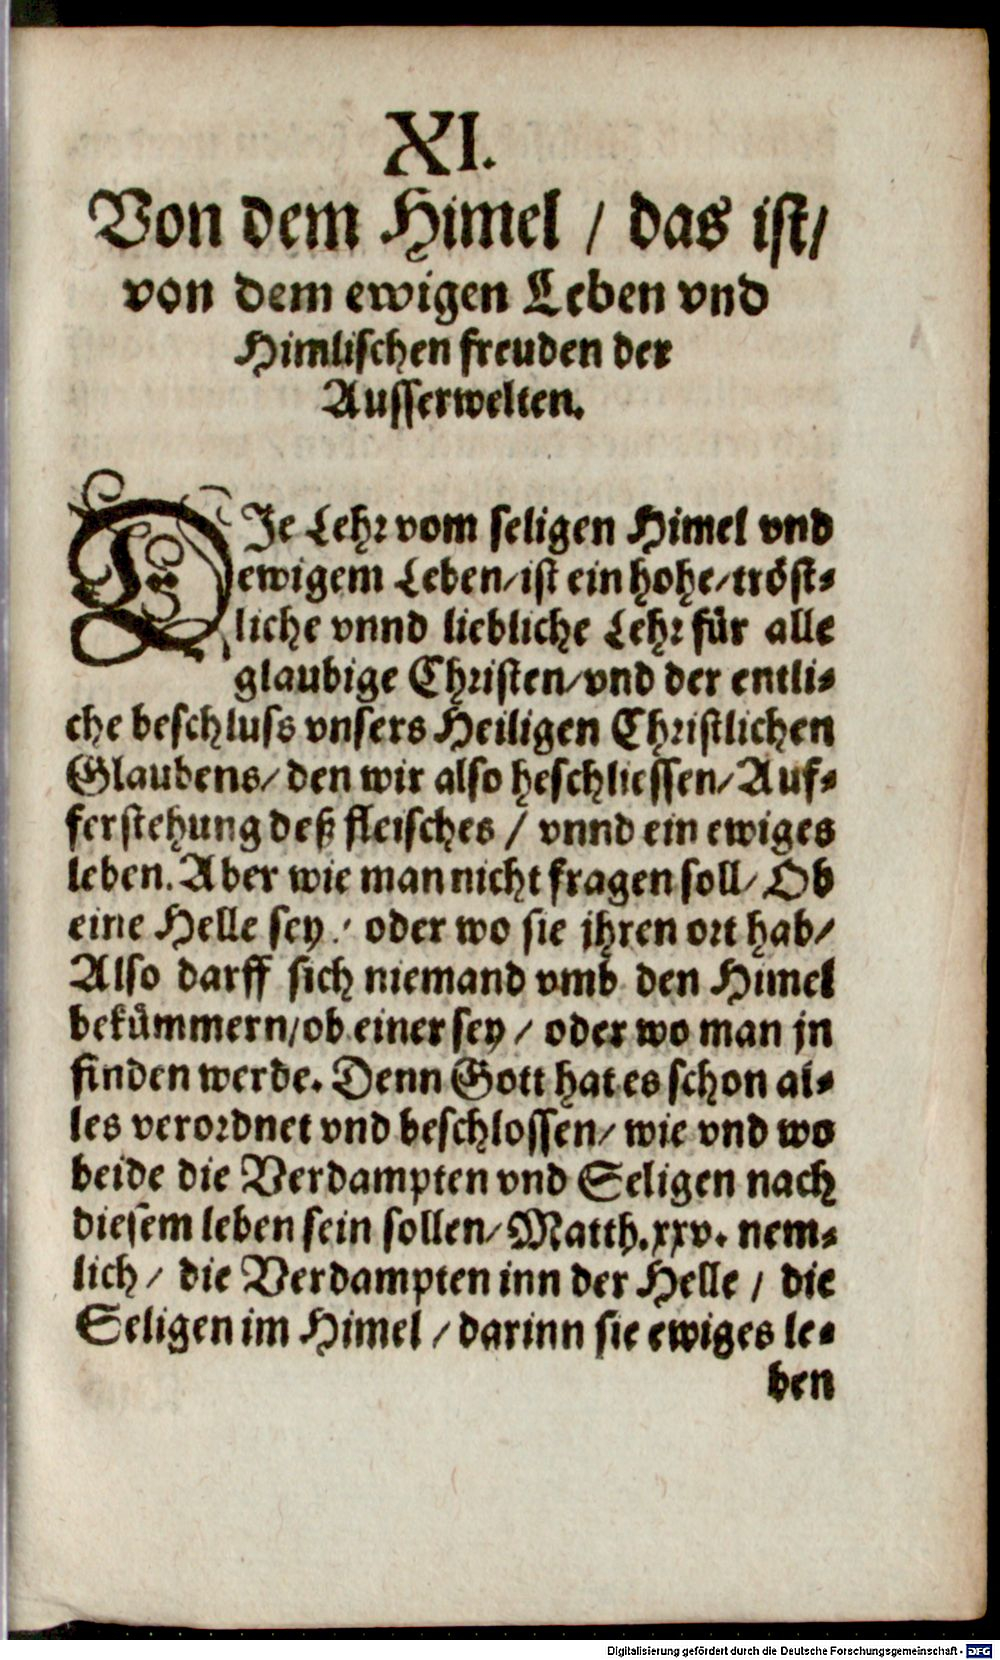 XI.
Von dem Himel / das ist/
von dem ewigen Leben vnd
Himlischen freuden der
Ausserwelten.
DJe Lehr vom seligen Himel vnd
ewigem Leben/ist ein hohe/tröst-
liche vnnd liebliche Lehr für alle
glaubige Christen/vnd der entli-
che beschluss vnsers Heiligen Christlichen
Glaubens/ den wir also heschliessen/ Auf-
ferstehung deß fleisches / vnnd ein ewiges
leben. Aber wie man nicht fragen soll/ Ob
eine Helle sey? oder wo sie jhren ort hab/
Also darff sich niemand vmb den Himel
bekümmern/ob einer sey / oder wo man jn
finden werde. Denn Gott hat es schon al-
les verordnet vnd beschlossen/ wie vnd wo
beide die Verdampten vnd Seligen nach
diesem leben sein sollen/ Matth.xxv. nem-
lich / die Verdampten inn der Helle / die
Seligen im Himel / darinn sie ewiges le-
ben
Digitalisierung gefördert durch die Deutsche Forschungsgemeinschaft - DFG